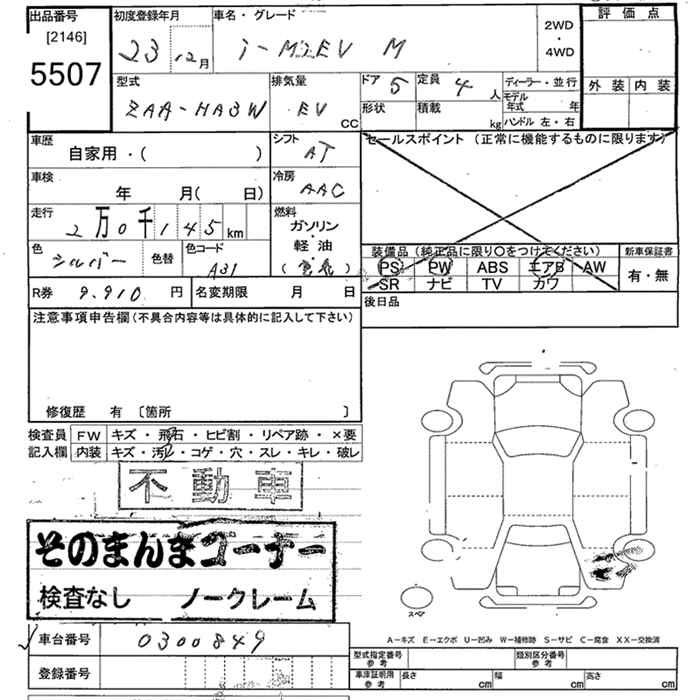 出品番号
[2146]
5507
初度登録年月
23 12月
車名・グレード
i-MiEV M
2WD
・
4WD
評価点
外装 内装
型式
ZAA-HA3W
排気量
EV CC
ドア 5
定員 4 人
形状
積載 kg
ディーラー・並行
モデル年式 年
ハンドル 左・右
車歴
自家用・( )
シフト
AT
セールスポイント (正常に機能するものに限ります)
車検
年 月( 日)
冷房
AAC
走行
2万0千145km
燃料
ガソリン
・
軽油
(電気)
色
シルバー
色替
色コード
A31
装備品 (純正品に限り○をつけてください)
PS PW ABS エアB AW
SR ナビ TV カワ
新車保証書
有・無
R券 9,910 円
名変期限 月 日
後日品
注意事項申告欄(不具合内容等は具体的に記入して下さい)
修復歴 有 〔箇所 〕
検査員
記入欄
FW キズ・飛石・ヒビ割・リペア跡・×要
内装 キズ・汚れ・コゲ・穴・スレ・キレ・破レ
不動車
そのまんまコーナー
検査なし ノークレーム
スペア
A-キズ E-エクボ U-凹み W-補修跡 S-サビ C-腐食 XX-交換済
車台番号 0300849
登録番号
型式指定番号
参考
類別区分番号
参考
車庫証明用
参考
長さ cm
幅 cm
高さ cm